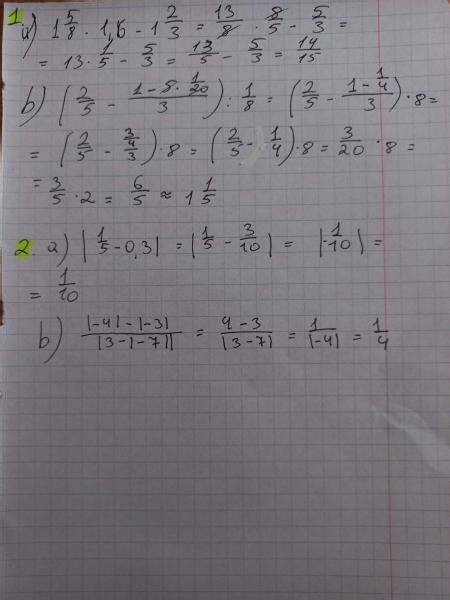 1 a) 1 5/8 · 1,6 - 1 2/3 = 13/8 · 8/5 - 5/3 =
= 13 · 1/5 - 5/3 = 13/5 - 5/3 = 14/15
b) (2/5 - (1 - 5 · 1/20)/3) : 1/8 = (2/5 - (1 - 1/4)/3) · 8 =
= (2/5 - (3/4)/3) · 8 = (2/5 - 1/4) · 8 = 3/20 · 8 =
= 3/5 · 2 = 6/5 ≈ 1 1/5
2. a) |1/5 - 0,3| = |1/5 - 3/10| = |-1/10| =
= 1/10
b) (|-4| - |-3|)/|3 - |-7|| = (4 - 3)/|3 - 7| = 1/|-4| = 1/4